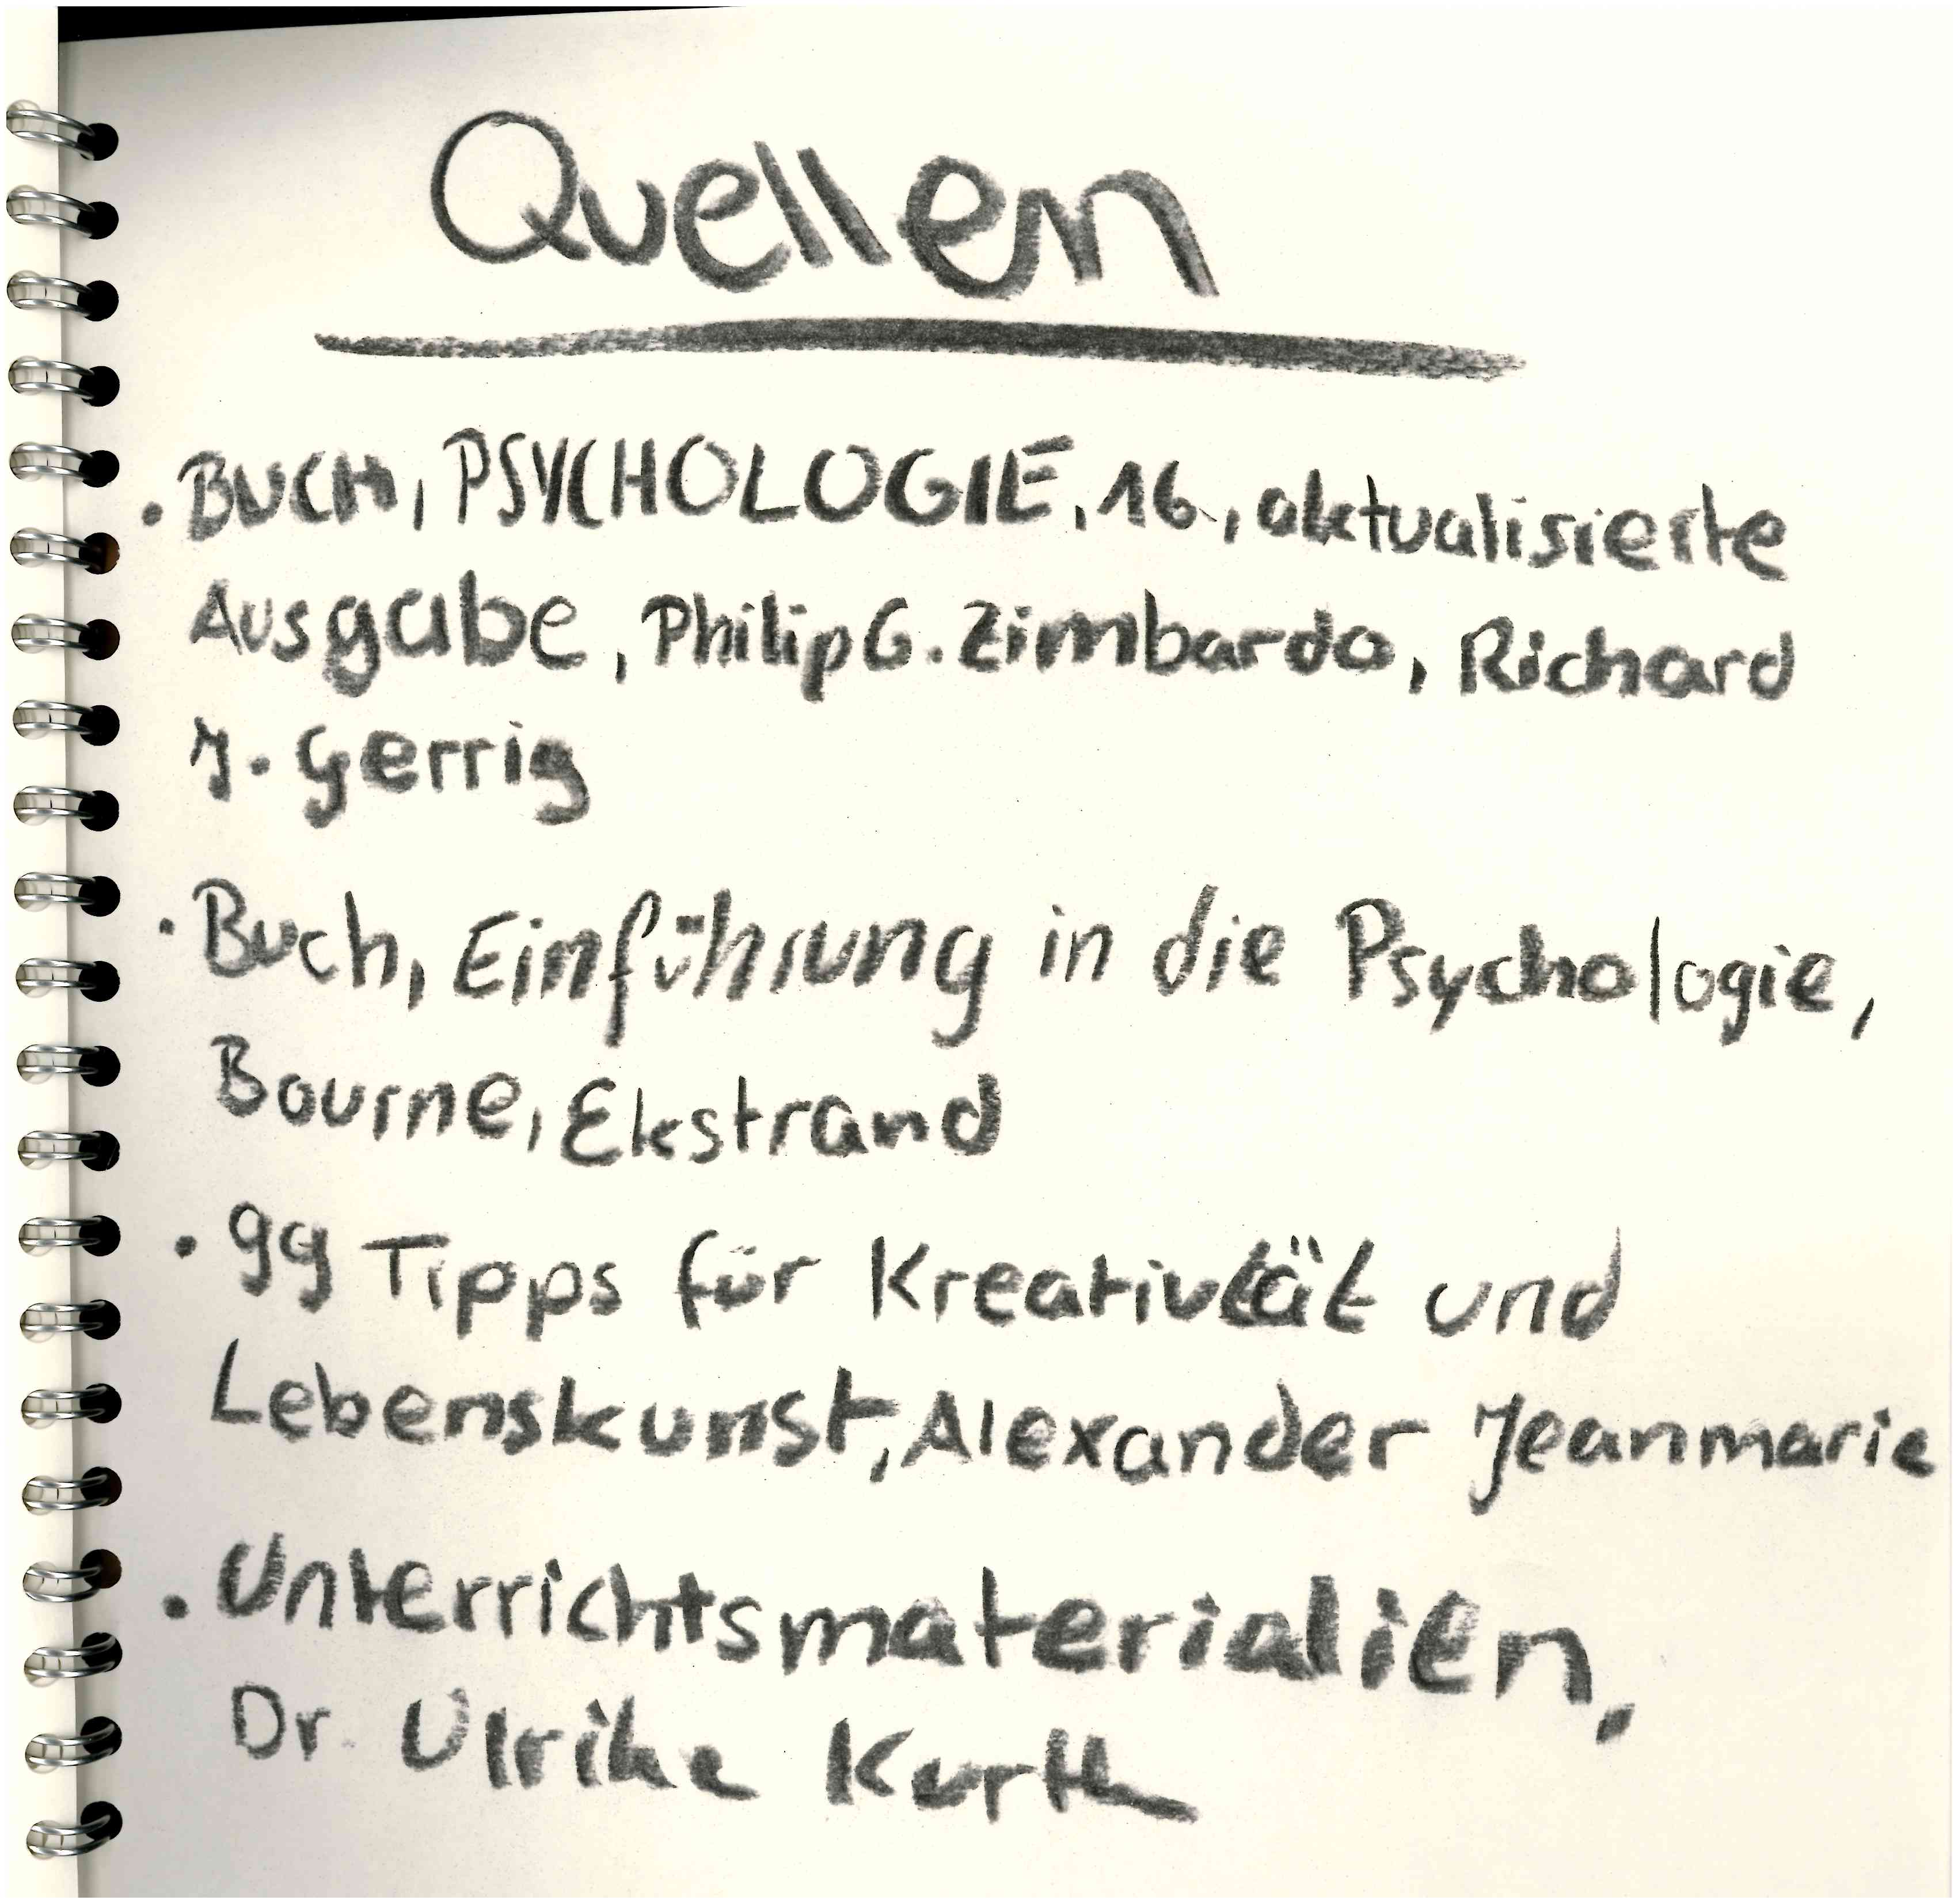 Quellen
• BUCH, PSYCHOLOGIE, 16., aktualisierte
Ausgabe, Philip G. Zimbardo, Richard
J. Gerrig
• Buch, Einführung in die Psychologie,
Bourne, Ekstrand
• 99 Tipps für Kreativität und
Lebenskunst, Alexander Jeanmarie
• Unterrichtsmaterialien,
Dr. Ulrike Kurth